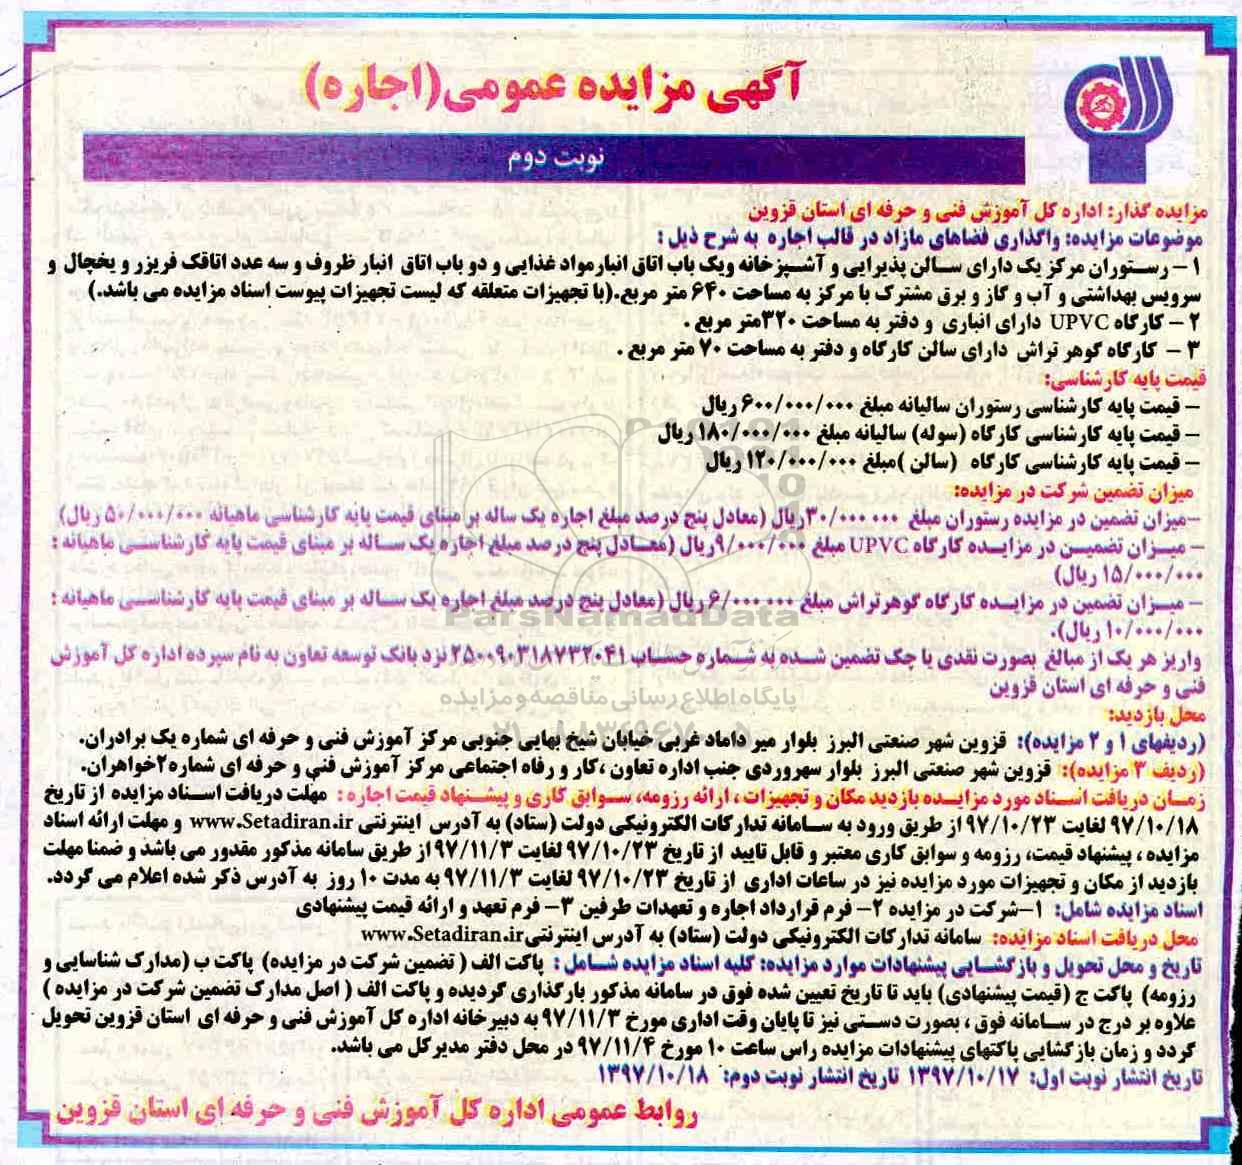 آگهی مزایده عمومی(اجاره)
نوبت دوم
مزایده گذار: اداره کل آموزش فنی و حرفه ای استان قزوین
موضوعات مزایده: واگذاری فضاهای مازاد در قالب اجاره به شرح ذیل :
۱ – رستوران مرکز یک دارای سالن پذیرایی و آشپزخانه ویک باب اتاق انبارمواد غذایی و دو باب اتاق انبار ظروف و سه عدد اتاقک فریزر و یخچال و
سرویس بهداشتی و آب و گاز و برق مشترک با مرکز به مساحت ۶۴۰ متر مربع.(با تجهیزات متعلقه که لیست تجهیزات پیوست اسناد مزایده می باشد.)
۲ – کارگاه UPVC دارای انباری و دفتر به مساحت ۳۲۰متر مربع .
۳ – کارگاه گوهر تراش دارای سالن کارگاه و دفتر به مساحت ۷۰ متر مربع .
قیمت پایه کارشناسی:
– قیمت پایه کارشناسی رستوران سالیانه مبلغ ۶۰۰/۰۰۰/۰۰۰ ریال
– قیمت پایه کارشناسی کارگاه (سوله) سالیانه مبلغ ۱۸۰/۰۰۰/۰۰۰ ریال
– قیمت پایه کارشناسی کارگاه (سالن )مبلغ ۱۲۰/۰۰۰/۰۰۰ ریال
میزان تضمین شرکت در مزایده:
–میزان تضمین در مزایده رستوران مبلغ ۳۰/۰۰۰۰۰۰ریال (معادل پنج درصد مبلغ اجاره یک ساله بر مبنای قیمت پایه کارشناسی ماهیانه ۵۰/۰۰۰/۰۰۰ ریال)
– میزان تضمین در مزایده کارگاه UPVC مبلغ ۹/۰۰۰/۰۰۰ریال (معادل پنج درصد مبلغ اجاره یک ساله بر مبنای قیمت پایه کارشناسی ماهیانه :
۱۵/۰۰۰/۰۰۰ ریال)
– میزان تضمین در مزایده کارگاه گوهرتراش مبلغ ۶/۰۰۰۰۰۰ریال (معادل پنج درصد مبلغ اجاره یک ساله بر مبنای قیمت پایه کارشناسی ماهیانه :
۱۰/۰۰۰/۰۰۰ ریال).
واریز هر یک از مبالغ بصورت نقدی یا چک تضمین شده به شماره حساب ۲۵۰۰۹۰۳۱۸۷۳۲۰۴۱ نزد بانک توسعه تعاون به نام سپرده اداره کل آموزش
فنی و حرفه ای استان قزوین
محل بازدید:
(ردیفهای ۱ و ۲ مزایده): قزوین شهر صنعتی البرز بلوار میر داماد غربی خیابان شیخ بهایی جنوبی مرکز آموزش فنی و حرفه ای شماره یک برادران.
(ردیف ۳ مزایده): قزوین شهر صنعتی البرز بلوار سهروردی جنب اداره تعاون ،کار و رفاه اجتماعی مرکز آموزش فنی و حرفه ای شماره۲خواهران.
زمان دریافت اسناد مورد مزایده بازدید مکان و تجهیزات ، ارائه رزومه، سوابق کاری و پیشنهاد قیمت اجاره : مهلت دریافت اسناد مزایده از تاریخ
۹۷/۱۰/۱۸ لغایت ۹۷/۱۰/۲۳ از طریق ورود به سامانه تدارکات الکترونیکی دولت (ستاد) به آدرس اینترنتی www.Setadiran.ir و مهلت ارائه اسناد
مزایده ، پیشنهاد قیمت، رزومه و سوابق کاری معتبر و قابل تایید از تاریخ ۹۷/۱۰/۲۳ لغایت ۹۷/۱۱/۳ از طریق سامانه مذکور مقدور می باشد و ضمنا مهلت
بازدید از مکان و تجهیزات مورد مزایده نیز در ساعات اداری از تاریخ ۹۷/۱۰/۲۳ لغایت ۹۷/۱۱/۳ به مدت ۱۰ روز به آدرس ذکر شده اعلام می گردد.
اسناد مزایده شامل: ۱–شرکت در مزایده ۲– فرم قرارداد اجاره و تعهدات طرفین ۳– فرم تعهد و ارائه قیمت پیشنهادی
محل دریافت اسناد مزایده: سامانه تدارکات الکترونیکی دولت (ستاد) به آدرس اینترنتیwww.Setadiran.ir
تاریخ و محل تحویل و بازگشایی پیشنهادات موارد مزایده: کلیه اسناد مزایده شامل : پاکت الف ( تضمین شرکت در مزایده) پاکت ب (مدارک شناسایی و
رزومه) پاکت ج (قیمت پیشنهادی) باید تا تاریخ تعیین شده فوق در سامانه مذکور بارگذاری گردیده و پاکت الف ( اصل مدارک تضمین شرکت در مزایده )
علاوه بر درج در سامانه فوق ، بصورت دستی نیز تا پایان وقت اداری مورخ ۹۷/۱۱/۳ به دبیرخانه اداره کل آموزش فنی و حرفه ای استان قزوین تحویل
گردد و زمان بازگشایی پاکتهای پیشنهادات مزایده راس ساعت ۱۰ مورخ ۹۷/۱۱/۴ در محل دفتر مدیرکل می باشد.
تاریخ انتشار نوبت اول: ۱۳۹۷/۱۰/۱۷ تاریخ انتشار نوبت دوم: ۱۳۹۷/۱۰/۱۸
روابط عمومی اداره کل آموزش فنی و حرفه ای استان قزوین
ParsNamadData
پایگاه اطلاع رسانی مناقصه و مزایده